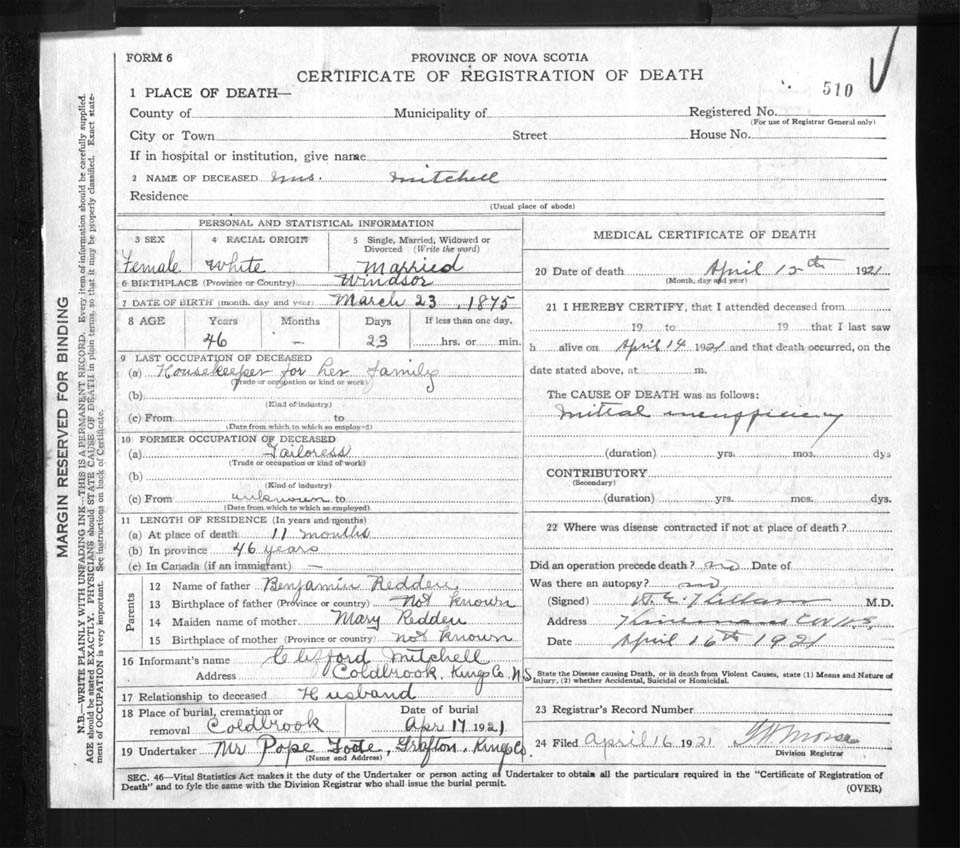 FORM 6
PROVINCE OF NOVA SCOTIA
CERTIFICATE OF REGISTRATION OF DEATH
510
1 PLACE OF DEATH—
County of Municipality of Registered No.
(For use of Registrar General only)
City or Town Street House No.
If in hospital or institution, give name
2 NAME OF DECEASED Mrs. Mitchell
Residence
(Usual place of abode)
PERSONAL AND STATISTICAL INFORMATION
3 SEX 4 RACIAL ORIGIN 5 Single, Married, Widowed or
Divorced (Write the word)
Female White Married
6 BIRTHPLACE (Province or Country) Windsor
7 DATE OF BIRTH (month, day and year) March 23, 1875
8 AGE Years Months Days If less than one day,
46 — 23 hrs. or min.
9 LAST OCCUPATION OF DECEASED
(a) Housekeeper for her family
(Trade or occupation or kind or work)
(b)
(Kind of industry)
(c) From to
(Date from which to which so employed)
10 FORMER OCCUPATION OF DECEASED
(a) Tailoress
(Trade or occupation or kind of work)
(b)
(Kind of industry)
(c) From unknown to
(Date from which to which so employed)
11 LENGTH OF RESIDENCE (In years and months)
(a) At place of death 11 months
(b) In province 46 years
(c) In Canada (if an immigrant) —
Parents
12 Name of father Benjamin Redden
13 Birthplace of father (Province or country) Not known
14 Maiden name of mother Mary Redden
15 Birthplace of mother (Province or country) not known
16 Informant's name Clifford Mitchell
Address Coldbrook, Kings Co, N.S
17 Relationship to deceased Husband
18 Place of burial, cremation or Date of burial
removal Coldbrook Apr 17 1921
19 Undertaker Mr Pope Foote, Grafton, Kings Co.
(Name and Address)
MEDICAL CERTIFICATE OF DEATH
20 Date of death April 15th 1921
(Month, day and year)
21 I HEREBY CERTIFY, that I attended deceased from
19 to 19 that I last saw
h alive on April 14 1921 and that death occurred, on the
date stated above, at m.
The CAUSE OF DEATH was as follows:
Mitral
(duration) yrs. mos. dys
CONTRIBUTORY
(Secondary)
(duration) yrs. mos. dys.
22 Where was disease contracted if not at place of death?
Did an operation precede death? no Date of
Was there an autopsy? no
(Signed) M.D.
Address
Date April 16th 1921
State the Disease causing Death, or in death from Violent Causes, state (1) Means and Nature of
Injury, (2) whether Accidental, Suicidal or Homicidal.
23 Registrar's Record Number
24 Filed April 16 1921
Division Registrar
SEC. 46—Vital Statistics Act makes it the duty of the Undertaker or person acting as Undertaker to obtain all the particulars required in the "Certificate of Registration of
Death" and to fyle the same with the Division Registrar who shall issue the burial permit.
(OVER)
MARGIN RESERVED FOR BINDING
N.B.—WRITE PLAINLY WITH UNFADING INK—THIS IS A PERMANENT RECORD. Every item of information should be carefully supplied.
AGE should be stated EXACTLY. PHYSICIANS should STATE CAUSE OF DEATH in plain terms, so that it may be properly classified. Exact state-
ment of OCCUPATION is very important. See instructions on back of Certificate.